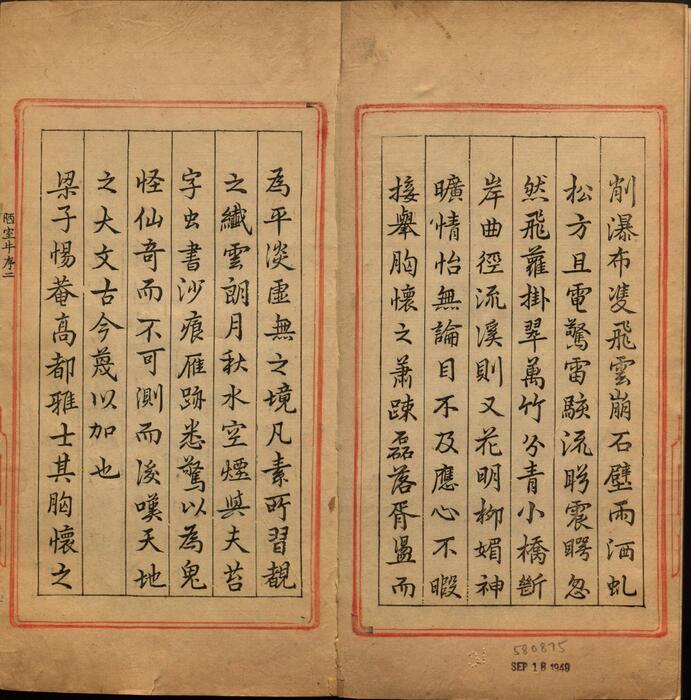 削瀑布䨇飛雲崩石壁雨洒虬
松方且電驚雷駭流眄震㖾忽
然飛蘿掛翠萬竹分青小橋斷
岸曲徑流溪則又花明柳媚神
曠情怡無論目不及應心不暇
接舉胸懷之蕭踈磊落胥盪而
為平淡虛無之境凡素所習覩
之纖雲朗月秋水空煙與夫苔
字虫書沙痕雁跡悉驚以為鬼
怪仙奇而不可測而後嘆天地
之大文古今蔑以加也
梁子惕菴高都雅士其胸懷之
序二
580875
SEP 18 1949